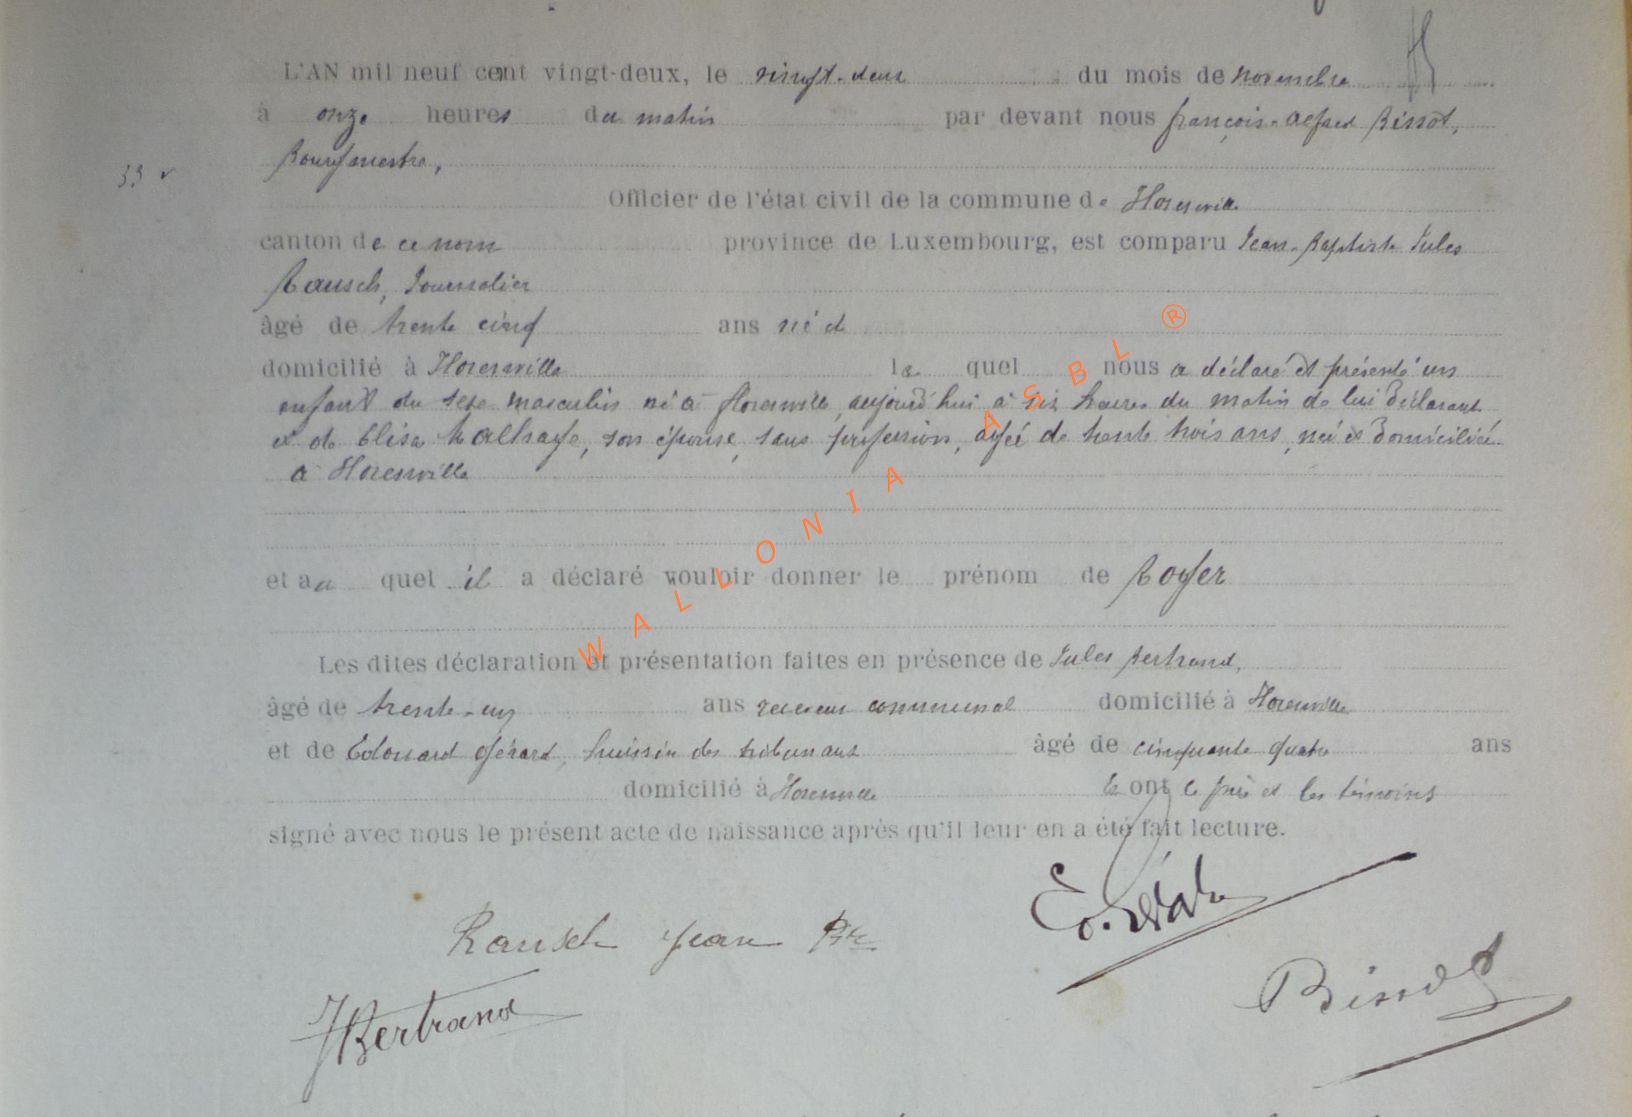 L'AN mil neuf cent vingt-deux, le vingt-deux du mois de novembre
à onze heures du matin par devant nous françois-alfred Binsot,
Bourgmestre,
33
Officier de l'état civil de la commune de Florenville
canton de ce nom province de Luxembourg, est comparu Jean-Baptiste Jules
Rausch, Journalier
âgé de trente cinq ans né et
domicilié à Florenville le quel nous a déclaré et présenté un
enfant du sexe masculin né à florenville, aujourd'hui à six heures du matin de lui déclarant
et de Elisa, son épouse, sans profession, agée de trente trois ans, née et domiciliée
à Florenville
et au quel il a déclaré vouloir donner le prénom de Roger
Les dites déclaration et présentation faites en présence de Jules Bertrand,
âgé de trente-un ans receveur communal domicilié à Florenville
et de Edouard Gérard, huissier des tribunaux âgé de cinquante quatre ans
domicilié à Florenville Et ont le père et les témoins
signé avec nous le présent acte de naissance après qu'il leur en a été fait lecture.
WALLONIA ASBL ®
Rausch Jean Bte
JBertrand